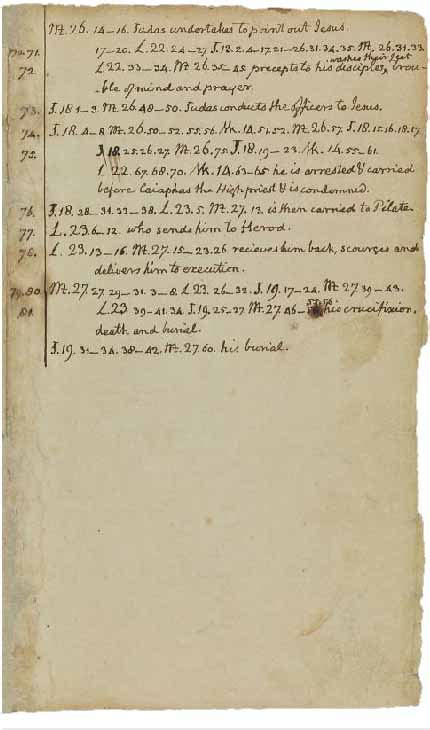 Mt. 26. 14–16. Judas undertakes to point out Jesus.
70. 71. 17–20. L. 22. 24–27 J. 13. 2. 4–17. 21–26. 31. 34. 35. Mt. 26. 31. 33.
washes their feet
72. L. 22. 33–34. Mt. 26. 35–45 precepts to his disciples, trou-
ble of mind and prayer.
73. J. 18. 1–3. Mt. 26. 48–50. Judas conducts the officers to Jesus.
74. J. 18. 4–8. Mt. 26. 50–52. 55. 56. Mk. 14. 51. 52. Mt. 26. 57. J. 18. 15. 16. 18. 17
75. J. 18. 25. 26. 27. Mt. 26. 75. J. 18. 19–23. Mk. 14. 55–61.
L. 22. 67. 68. 70. Mk. 14. 63–65 he is arrested & carried
before Caiaphas the High priest & is condemned.
76. J. 18. 28–31. 33–38. L. 23. 5. Mt. 27. 13. is then carried to Pilate.
77. L. 23. 6–12. who sends him to Herod.
78. L. 23. 13–16. Mt. 27. 15–23. 26 recieves him back, scourges and
delivers him to execution.
79. 80. Mt. 27. 27. 29–31. 3–8. L. 23. 26–32. J. 19. 17–24. Mt. 27 39–43.
81. L. 23 39–41. 34. J. 19. 25–27 Mt. 27. 46– his crucifixion.
death and burial.
J. 19. 31–34. 38–42. Mt. 27. 60. his burial.